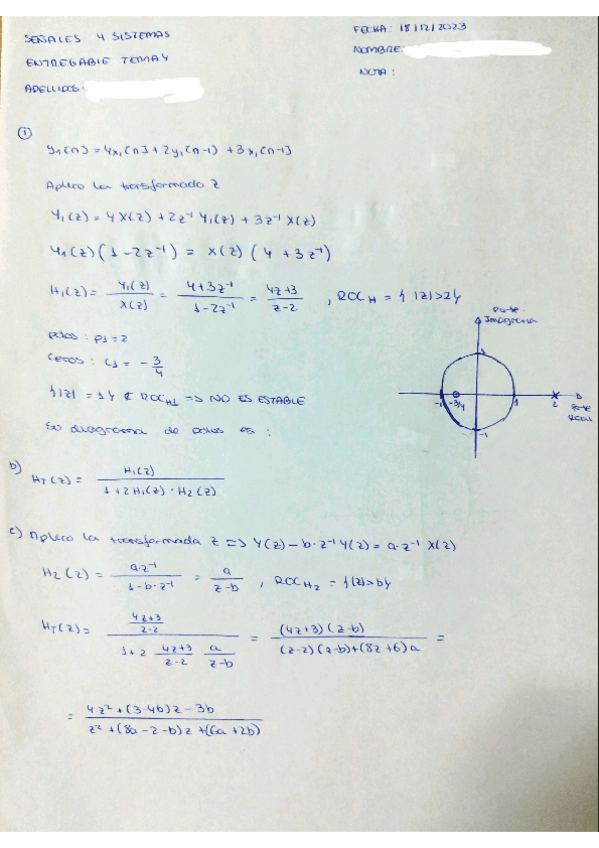 SEÑALES Y SISTEMAS
FECHA: 18/12/2023
ENTREGABLE TEMA 4
NOMBRE:
APELLIDOS:
NOTA:
①
y₁[n] = 4x₁[n] + 2y₁[n-1] + 3x₁[n-1]
Aplico la transformada z
Y₁(z) = 4X(z) + 2z⁻¹ Y₁(z) + 3z⁻¹ X(z)
Y₁(z)(1 - 2z⁻¹) = X(z)(4 + 3z⁻¹)
H₁(z) = Y₁(z)/X(z) = (4+3z⁻¹)/(1-2z⁻¹) = (4z+3)/(z-2) , ROC_H = {|z|>2}
polos: p1 = 2
Ceros: c1 = -3/4
{|z| = 1} ∉ ROC_H1 => NO ES ESTABLE
Su diagrama de polos es:
Parte
Imaginaria
1
-1 -3/4 1 2 Parte
Real
-1
b) H_T(z) = H₁(z)/(1+2H₁(z)·H₂(z))
c) Aplico la transformada z => Y(z) - b·z⁻¹Y(z) = a·z⁻¹ X(z)
H₂(z) = (a·z⁻¹)/(1-b·z⁻¹) = a/(z-b) , ROC_H2 = {|z|>b}
H_T(z) = ((4z+3)/(z-2))/(1+2 (4z+3)/(z-2) a/(z-b)) = ((4z+3)(z-b))/((z-2)(z-b)+(8z+6)a) =
= (4z²+(3-4b)z-3b)/(z²+(8a-2-b)z+(6a+2b))